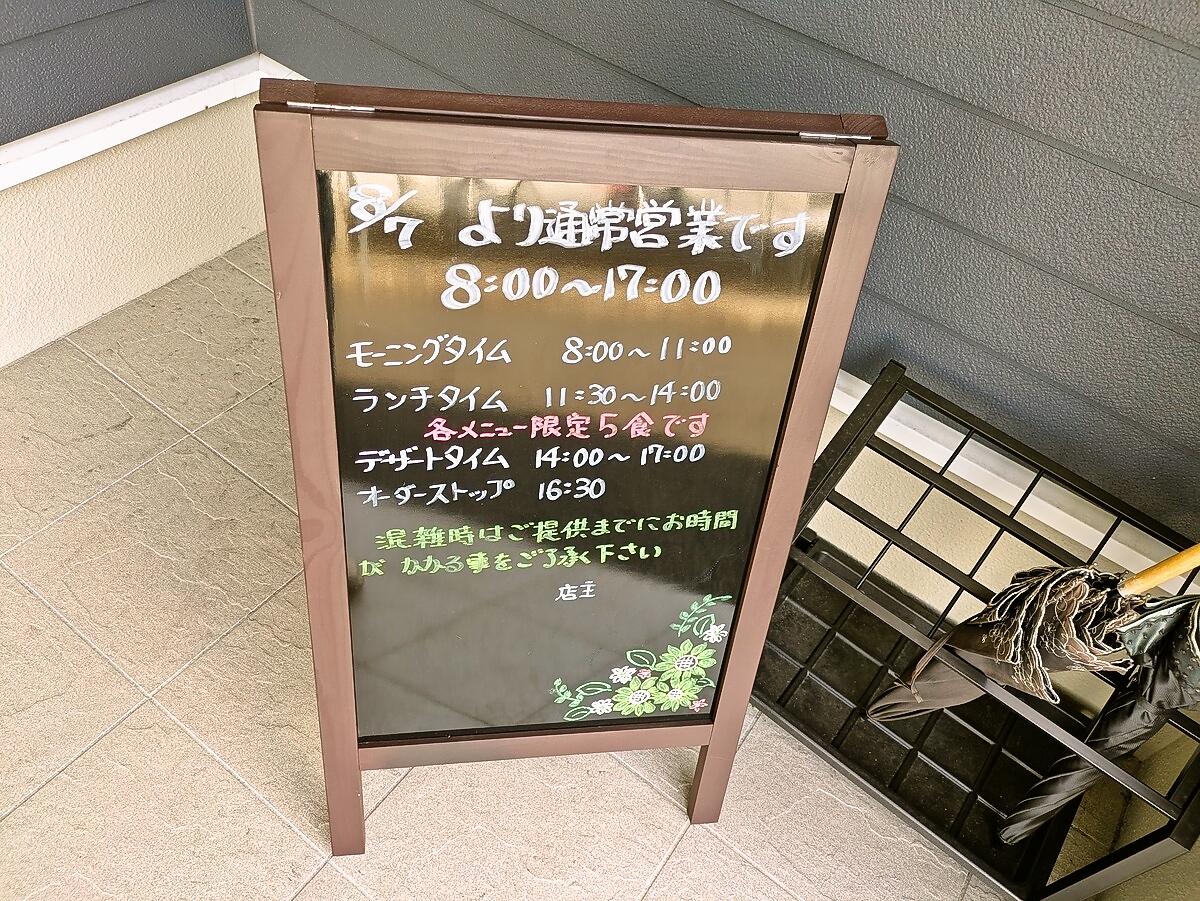 8/7 より通常営業です
8:00〜17:00
モーニングタイム 8:00〜11:00
ランチタイム 11:30〜14:00
各メニュー限定5食です
デザートタイム 14:00〜17:00
オーダーストップ 16:30
混雑時はご提供までにお時間
が かかる事をご了承下さい
店主